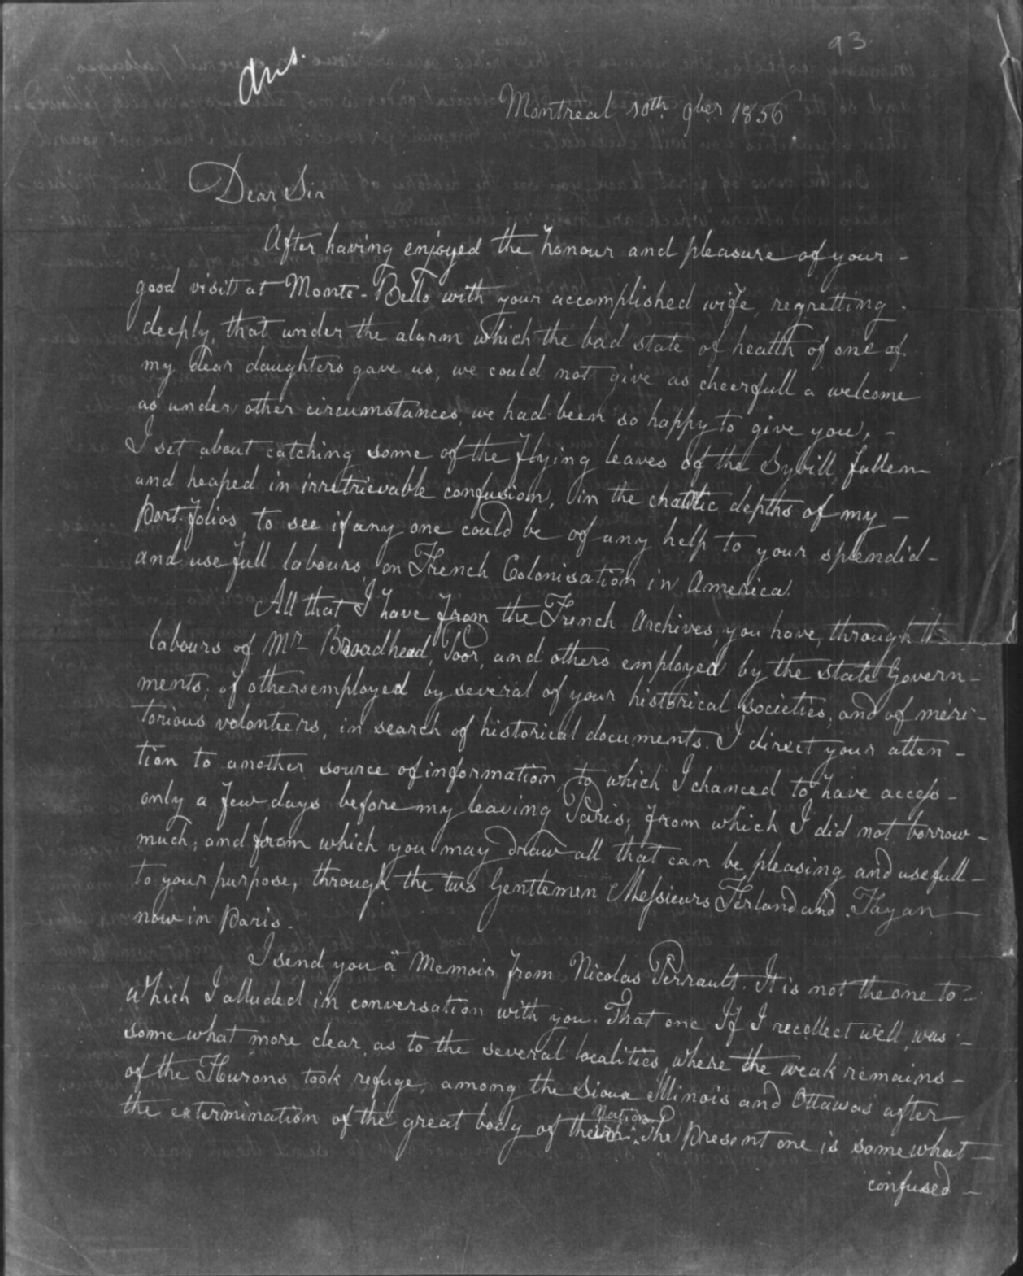 93
ans.
Montreal 10th. 9ber 1856
Dear Sir
After having enjoyed the honour and pleasure of your -
good visit at Monte-Bello with your accomplished wife, regretting
deeply, that under the alarm which the bad state of health of one of
my dear daughters gave us, we could not give as cheerfull a welcome
as under other circumstances we had been so happy to give you, -
I set about catching some of the flying leaves of the Sybill, fallen
and heaped in irretrievable confusion, in the chaotic depths of my -
Port-folios, to see if any one could be of any help to your splendid -
and usefull labours on French Colonisation in America.
All that I have from the French Archives, you have, through the
labours of Mr Broadhead, Poor, and others employed by the state Govern-
ments; of others employed by several of your historical societies, and of meri-
torious volonteers, in search of historical documents. I direct your atten-
tion to another source of information, to which I chanced to have access -
only a few days before my leaving Paris; from which I did not borrow -
much; and from which you may draw all that can be pleasing and usefull -
to your purpose, through the two Gentlemen Messieurs Ferland and
now in Paris.
I send you a Memoir from Nicolas Perrault. It is not the one to -
which I alluded in conversation with you. That one If I recollect well, was -
some what more clear, as to the several localities, where the weak remains -
of the Hurons took refuge, among the Sioux Illinois and Ottawas after
the extermination of the great body of their Nation. The present one is some what -
confused -